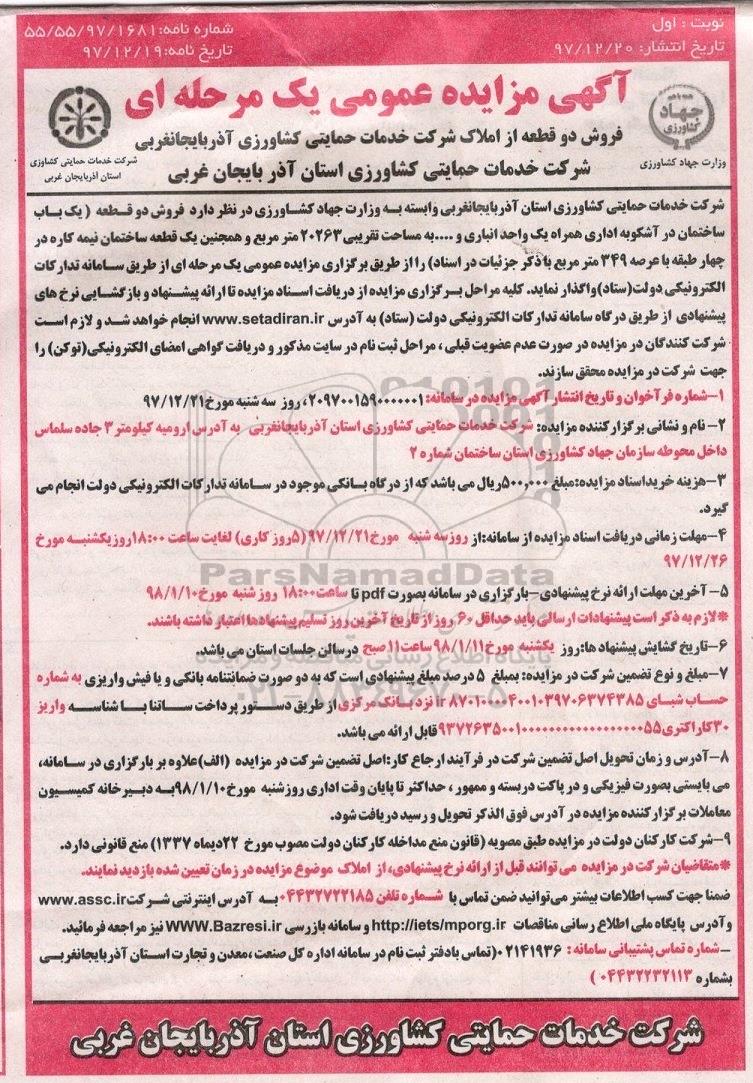 نوبت : اول
تاریخ انتشار: ۹۷/۱۲/۲۰
شماره نامه:۵۵/۵۵/۹۷/۱۶۸۱
تاریخ نامه:۹۷/۱۲/۱۹
آگهی مزایده عمومی یک مرحله ای
فروش دو قطعه از املاک شرکت خدمات حمایتی کشاورزی آذربایجانغربی
شرکت خدمات حمایتی کشاورزی استان آذر بایجان غربی
جهاد کشاورزی
وزارت جهاد کشاورزی
شرکت خدمات حمایتی کشاورزی
استان آذربایجان غربی
شرکت خدمات حمایتی کشاورزی استان آذربایجانغربی وابسته به وزارت جهاد کشاورزی در نظر دارد فروش دو قطعه ( یک باب
ساختمان در آشکوبه اداری همراه یک واحد انباری و ....به مساحت تقریبی ۲۰۲۶۳ متر مربع و همچنین یک قطعه ساختمان نیمه کاره در
چهار طبقه با عرصه ۳۴۹ متر مربع باذکر جزئیات در اسناد) را از طریق برگزاری مزایده عمومی یک مرحله ای از طریق سامانه تدارکات
الکترونیکی دولت(ستاد)واگذار نماید. کلیه مراحل برگزاری مزایده از دریافت اسناد مزایده تا ارائه پیشنهاد و بازگشایی نرخ های
پیشنهادی از طریق درگاه سامانه تدارکات الکترونیکی دولت (ستاد) به آدرس www.setadiran.ir انجام خواهد شد و لازم است
شرکت کنندگان در مزایده در صورت عدم عضویت قبلی ، مراحل ثبت نام در سایت مذکور و دریافت گواهی امضای الکترونیکی(توکن) را
جهت شرکت در مزایده محقق سازند.
۱-شماره فرآخوان و تاریخ انتشار آگهی مزایده در سامانه: ۲۰۹۷۰۰۱۵۹۰۰۰۰۰۰۱، روز سه شنبه مورخ۹۷/۱۲/۲۱
۲- نام و نشانی برگزار کننده مزایده: شرکت خدمات حمایتی کشاورزی استان آذربایجانغربی به آدرس ارومیه کیلومتر ۳ جاده سلماس
داخل محوطه سازمان جهاد کشاورزی استان ساختمان شماره ۲
۳-هزینه خریداسناد مزایده:مبلغ ۵۰۰,۰۰۰ریال می باشد که از درگاه بانکی موجود در سامانه تدارکات الکترونیکی دولت انجام می
گیرد.
۴-مهلت زمانی دریافت اسناد مزایده از سامانه:از روزسه شنبه مورخ۹۷/۱۲/۲۱ (۵روز کاری) لغایت ساعت ۱۸:۰۰روزیکشنبه مورخ
۹۷/۱۲/۲۶
۵-آخرین مهلت ارائه نرخ پیشنهادی-بارگزاری در سامانه بصورت pdf تا ساعت۱۸:۰۰ روز شنبه مورخ ۹۸/۱/۱۰
*لازم به ذکر است پیشنهادات ارسالی باید حداقل ۶۰ روز از تاریخ آخرین روز تسلیم پیشنهادها اعتبار داشته باشند.
۶-تاریخ گشایش پیشنهاد ها:روز یکشنبه مورخ۹۸/۱/۱۱ساعت۱۱صبح درسالن جلسات استان می باشد.
۷-مبلغ و نوع تضمین شرکت در مزایده: بمبلغ ۵ درصد مبلغ پیشنهادی است که به دو صورت ضمانتنامه بانکی و یا فیش واریزی به شماره
نزد بانک مرکزی از طریق دستور پرداخت ساتنا با شناسه واریز
۳۰کاراکتری قابل ارائه می باشد.
۸-آدرس و زمان تحویل اصل تضمین شرکت در فرآیند ارجاع کار:اصل تضمین شرکت در مزایده (الف)علاوه بر بارگزاری در سامانه،
می بایستی بصورت فیزیکی و در پاکت دربسته و ممهور ، حداکثر تا پایان وقت اداری روزشنبه مورخ۹۸/۱/۱۰به دبیرخانه کمیسیون
معاملات برگزار کننده مزایده در آدرس فوق الذکر تحویل و رسید دریافت شود.
۹-شرکت کارکنان دولت در مزایده طبق مصوبه (قانون منع مداخله کارکنان دولت مصوب مورخ ۲۲دیماه ۱۳۳۷) منع قانونی دارد.
*متقاضیان شرکت در مزایده می توانند قبل از ارائه نرخ پیشنهادی، از املاک موضوع مزایده در زمان تعیین شده بازدید نمایند.
ضمنا جهت کسب اطلاعات بیشتر می‌توانید ضمن تماس با شماره تلفن ۰۴۴۳۲۷۲۲۱۸۵ به آدرس اینترنتی شرکت www.assc.ir
وآدرس پایگاه ملی اطلاع رسانی مناقصات http://iets/mporg.ir و سامانه بازرسی WWW.Bazresi.ir نیز مراجعه فرمائید.
-شماره تماس پشتیبانی سامانه : ۰۲۱۴۱۹۳۶(تماس بادفتر ثبت نام در سامانه اداره کل صنعت ،معدن و تجارت استان آذربایجانغربی
بشماره ۰۴۴۳۲۲۳۲۱۱۳ )
ParsNamadData
پایگاه اطلاع رسانی مناقصه و مزایده
۰۲۱-۸۸۳۴۹۶۷۰-۵
شرکت خدمات حمایتی کشاورزی استان آذربایجان غربی